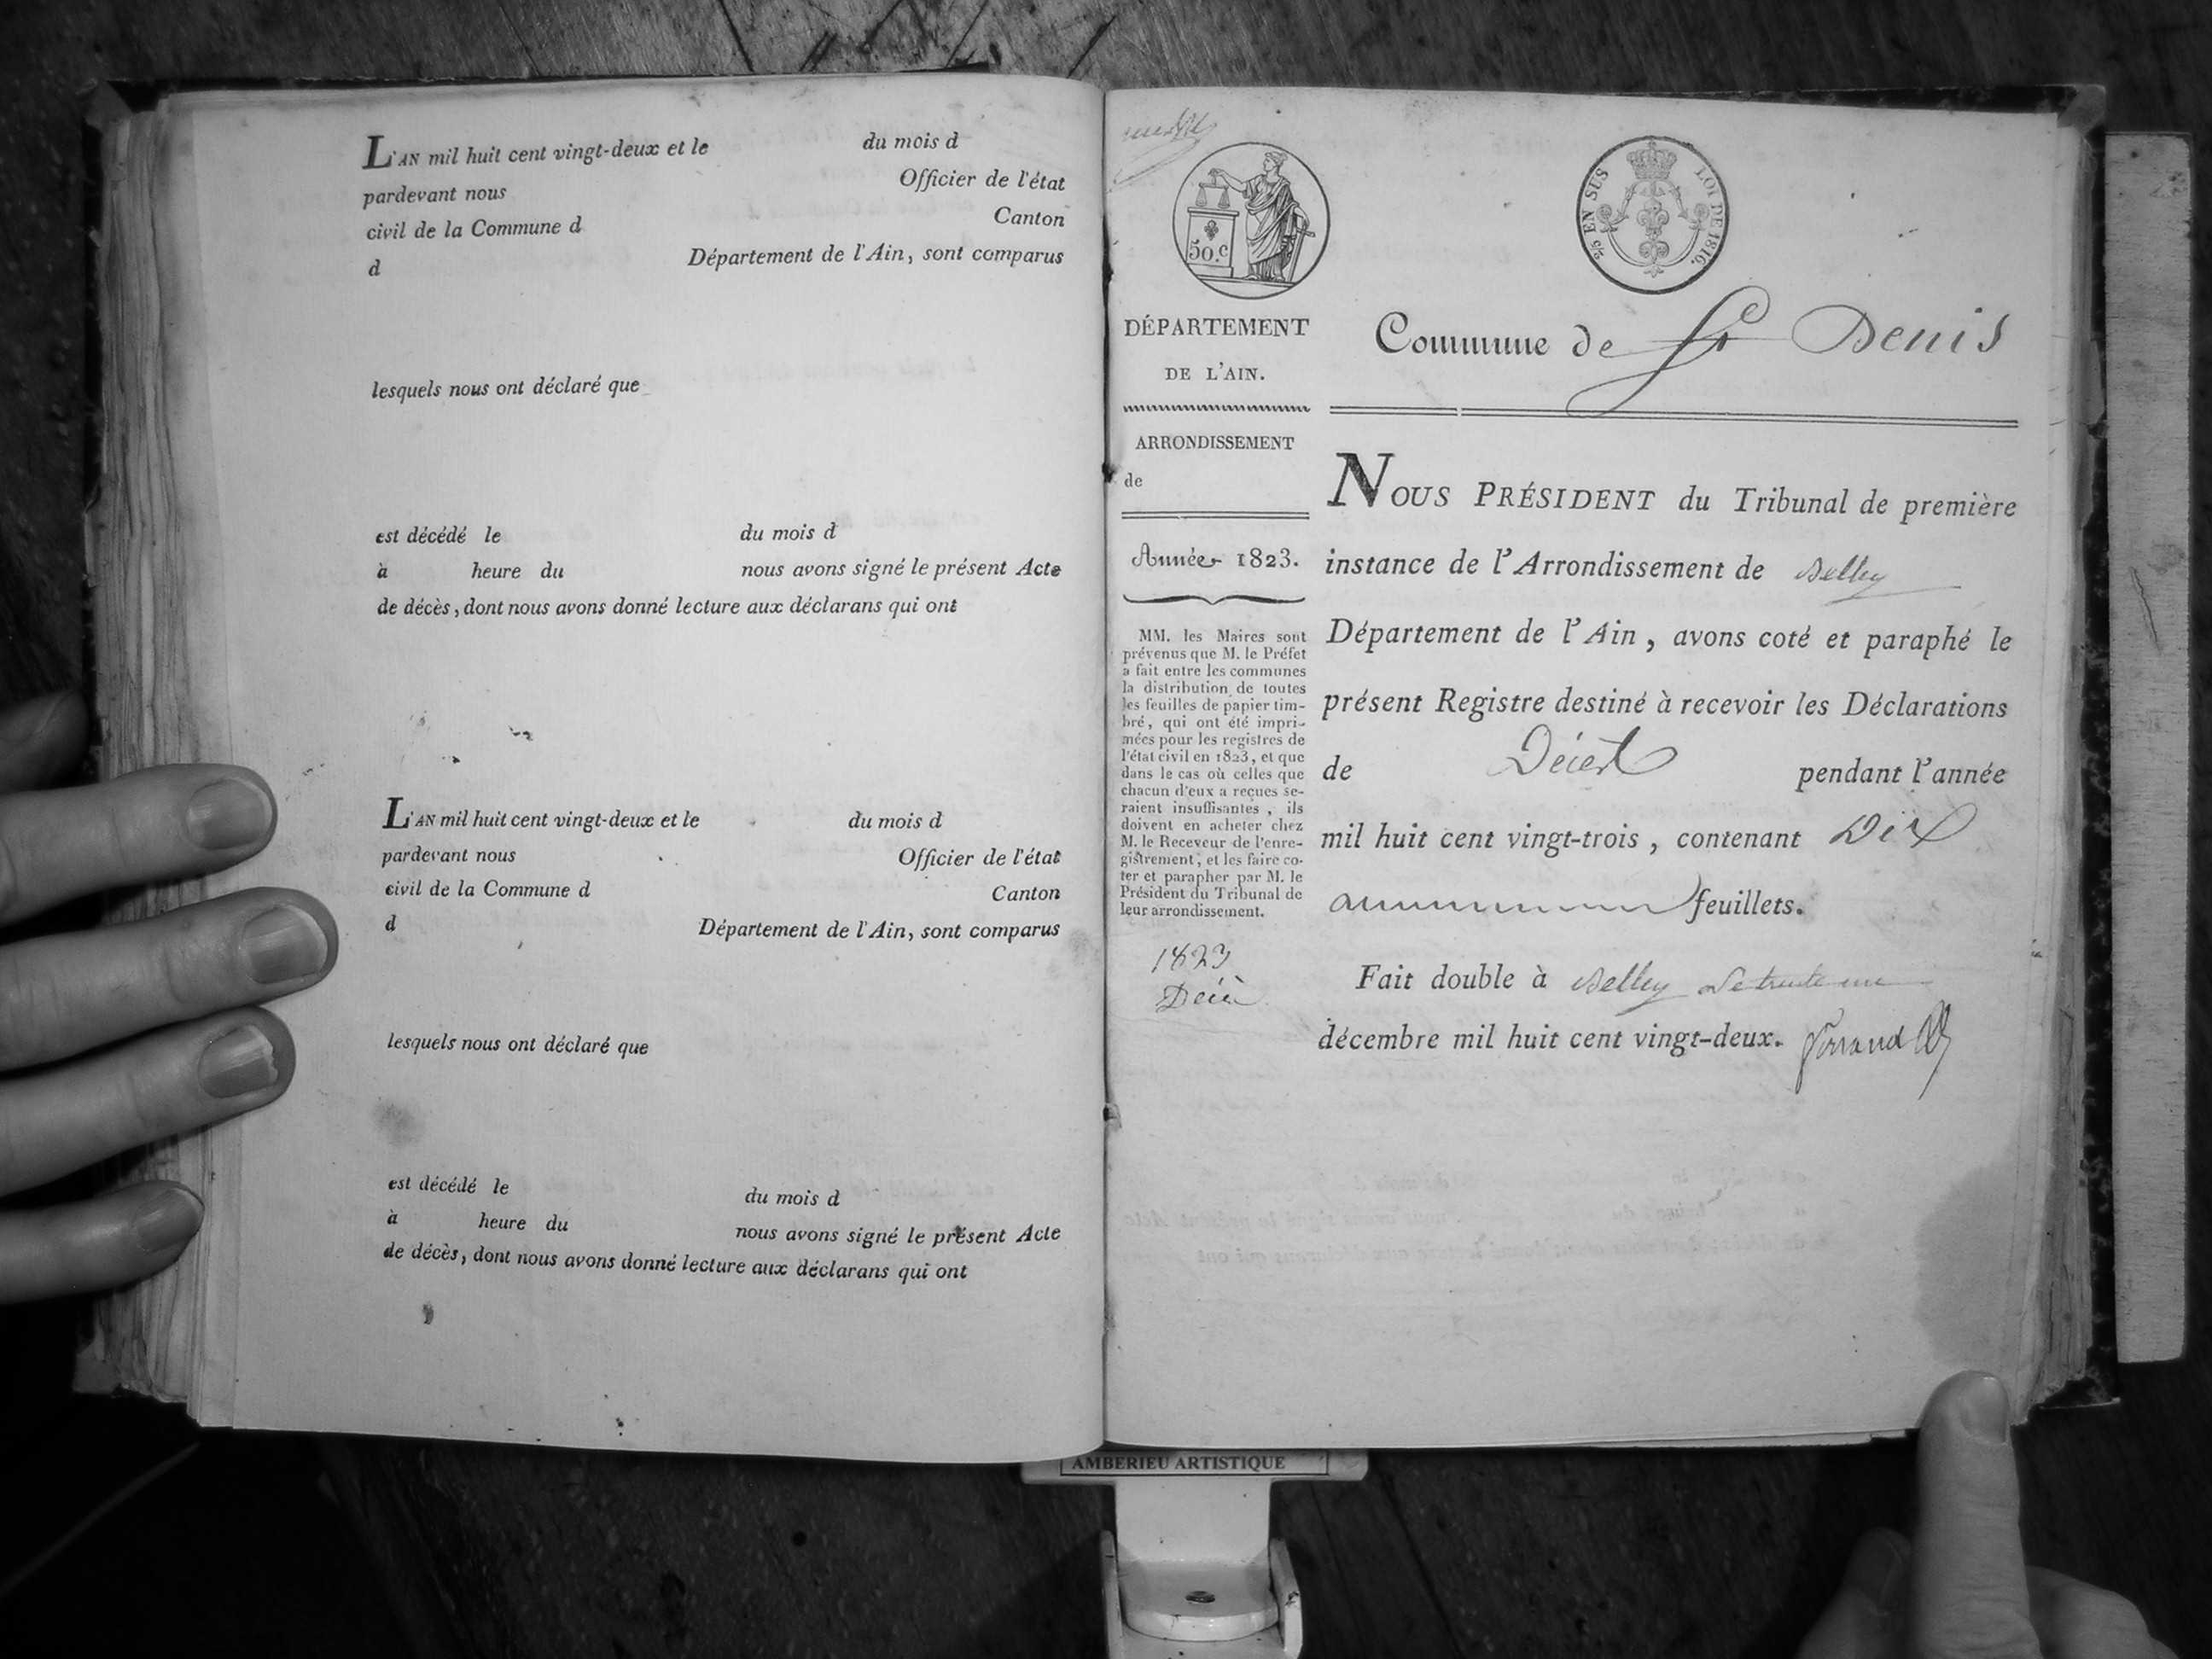 L'AN mil huit cent vingt-deux et le du mois d
pardevant nous Officier de l'état
civil de la Commune d Canton
d Département de l'Ain, sont comparus
lesquels nous ont déclaré que
est décédé le du mois d
à heure du nous avons signé le présent Acte
de décès, dont nous avons donné lecture aux déclarans qui ont
L'AN mil huit cent vingt-deux et le du mois d
pardevant nous Officier de l'état
civil de la Commune d Canton
d Département de l'Ain, sont comparus
lesquels nous ont déclaré que
est décédé le du mois d
à heure du nous avons signé le présent Acte
de décès, dont nous avons donné lecture aux déclarans qui ont
50.c
2/5 EN SUS LOI DE 1816.
DÉPARTEMENT
DE L'AIN.
ARRONDISSEMENT
de
Année 1823.
MM. les Maires sont
prévenus que M. le Préfet
a fait entre les communes
la distribution de toutes
les feuilles de papier tim-
bré, qui ont été impri-
mées pour les registres de
l'état civil en 1823, et que
dans le cas où celles que
chacun d'eux a reçues se-
raient insuffisantes, ils
doivent en acheter chez
M. le Receveur de l'enre-
gistrement, et les faire co-
ter et parapher par M. le
Président du Tribunal de
leur arrondissement.
1823
Décès
Commune de St Denis
NOUS PRÉSIDENT du Tribunal de première
instance de l'Arrondissement de Belley
Département de l'Ain, avons coté et paraphé le
présent Registre destiné à recevoir les Déclarations
de Décès pendant l'année
mil huit cent vingt-trois, contenant Dix
feuillets.
Fait double à Belley le trente un
décembre mil huit cent vingt-deux.
AMBERIEU ARTISTIQUE